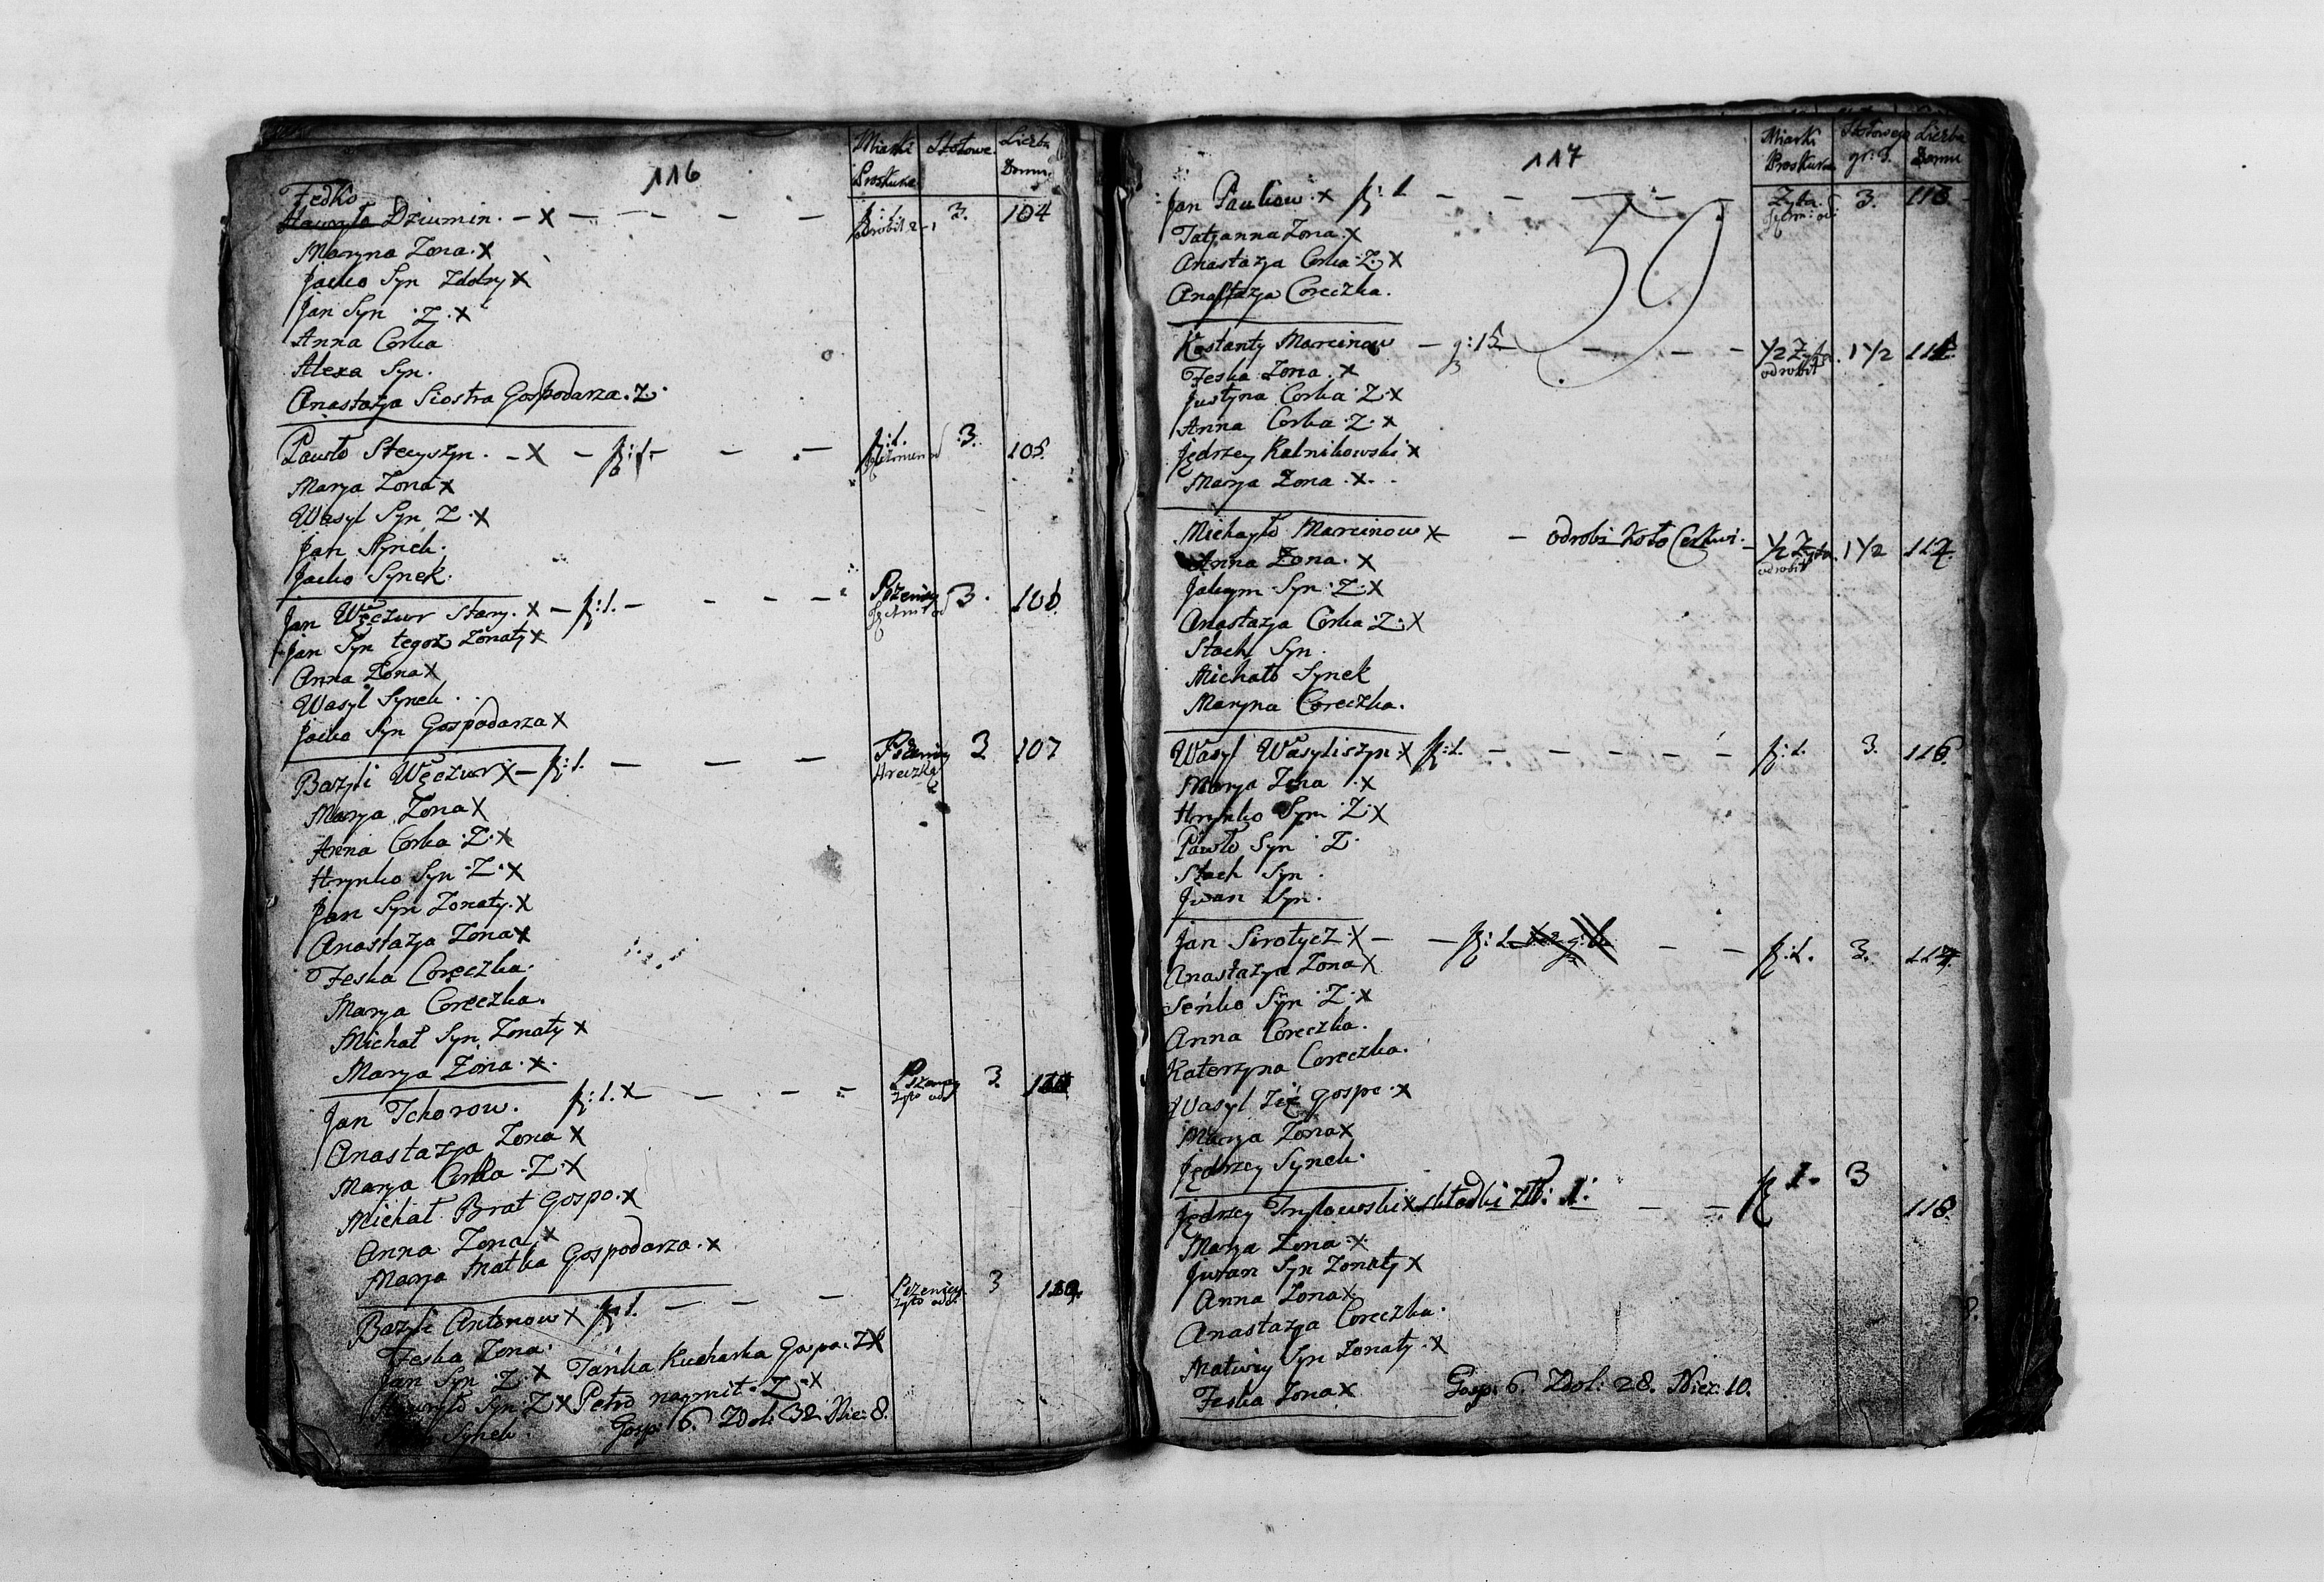 116
Miarki Stołowe. Liczba
Proskura Domu
Fedko
Hawryło Dziumin. – x – – – – 3. 104
Maryna Zona. x
Jacko Syn Zdolny x
Jan Syn Z. x
Anna Corka
Alexa Syn.
Anastazja Siostra Gospodarza. Z.
Pawło Stecyszyn. – x – f: 1. – – – f: 1. 3. 105.
Marya Zona x
Wasyl Syn Z. x
Jan Synek.
Jacko Synek.
Jan Węczur Stary. x – f: 1. – – – – Pszenicy 3.
Jan Syn tegoz Zonaty x
Anna Zona x
Wasyl Synek.
Jacko Syn Gospodarza x
Bazyli Węczur x – f: 1. – – – Pszenicy 3 107
Hreczka
Marya Zona x
Anna Corka Z. x
Hrynko Syn Z. x
Jan Syn Zonaty. x
Anastazya Zona x
Feska Coreczka.
Marya Coreczka.
Michał Syn Zonaty x
Marya Zona. x.
Jan Tchorow. f: 1. x – – – Pszenicy 3.
Anastazya Zona x
Marya Corka Z. x
Michał Brat Gospo. x
Anna Zona x
Marya Matka Gospodarza. x
Bazyli Antonow x f: 1. – – – Pszenicy 3
Feska Zona.
Jan Syn Z. x Tańka Kucharka Gospo. Z x
Syn Z x Petro najmit Z x
Synek. Gosp: 6. Zdol: 32 Nie: 8.
117
Miarki Stołowego Liczba
Proskura gr: 3. Domu
Jan Pawlow. x f: 1 – – – – – Zyta. 3.
Tatyanna Zona. x
59
Anastazya Corka Z. x
Anastazya Coreczka.
Kostanty Marcinow – g: 15 – – – 1/2 Zyta. 1 1/2
odrobił
Feska Zona. x
Justyna Corka Z. x
Anna Corka Z. x
Jędrzey Kalnikowski x
Marya Zona. x.
Michayło Marcinow x – odrobi koło Cerkwi. – 1/2 Zyta. 1 1/2
odrobił
Anna Zona. x
Jakym Syn Z. x
Anastazya Corka Z. x
Stach Syn.
Michało Synek
Maryna Coreczka.
Wasyl Wasyliszyn x f: 1. – – – – – f: 1. 3. 116.
Marya Zona. x
Hrynko Syn Z. x
Pawło Syn Z.
Stach Syn.
Jwan Syn.
Jan Sirotycz. x – – f: 1. – – f: 1. 3.
Anastazya Zona x
Seńko Syn Z. x
Anna Coreczka.
Katerzyna Coreczka.
Wasyl Zięć Gospo. x
Marya Zona x
Jędrzey Synek.
Jędrzey Tryłowski x składki zło: 1: – – – f 1. 3
118.
Marya Zona. x.
Jwan Syn Zonaty x
Anna Zona x
Anastazya Coreczka.
Matwiy Syn Zonaty. x
Feska Zona x. Gosp: 6. Zdol: 28. Niez: 10.